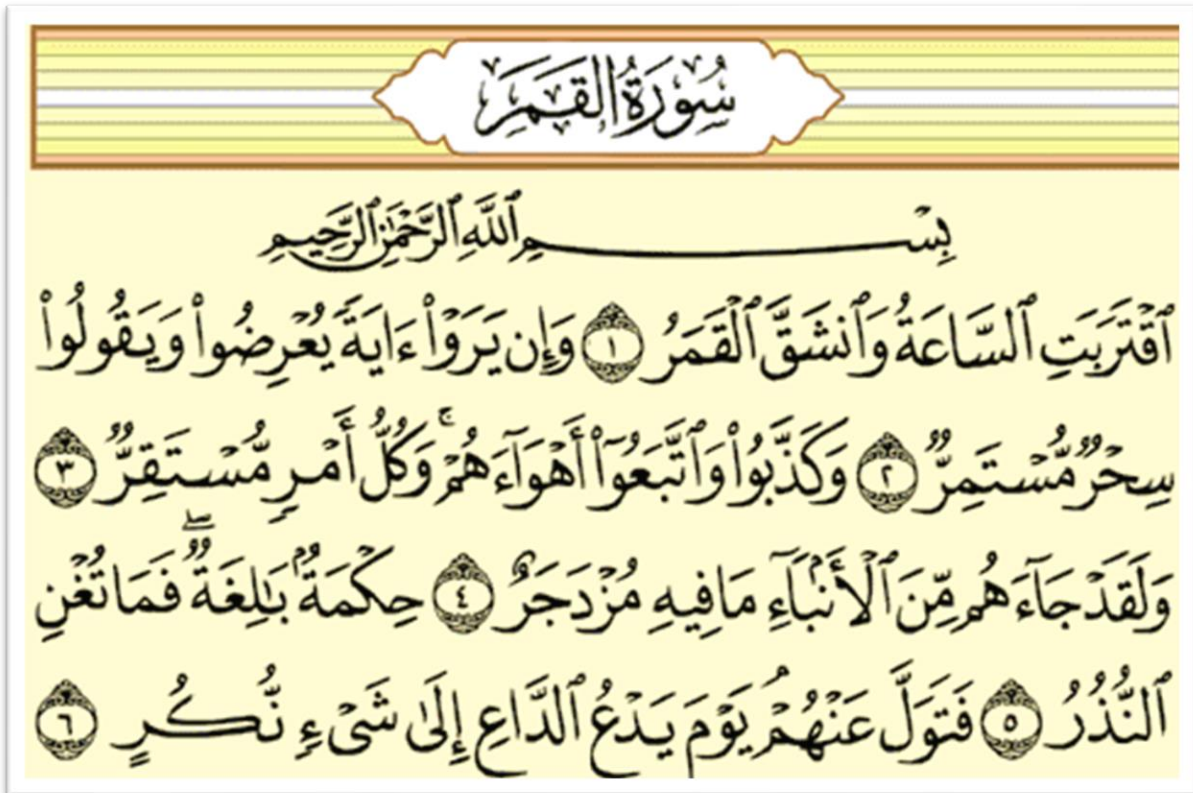 سُورَةُ القَمَرِ
بِسْمِ ٱللَّهِ ٱلرَّحْمَٰنِ ٱلرَّحِيمِ
ٱقْتَرَبَتِ ٱلسَّاعَةُ وَٱنشَقَّ ٱلْقَمَرُ ١ وَإِن يَرَوْا۟ ءَايَةً يُعْرِضُوا۟ وَيَقُولُوا۟
سِحْرٌ مُّسْتَمِرٌّ ٢ وَكَذَّبُوا۟ وَٱتَّبَعُوٓا۟ أَهْوَآءَهُمْ ۚ وَكُلُّ أَمْرٍ مُّسْتَقِرٌّ ٣
وَلَقَدْ جَآءَهُم مِّنَ ٱلْأَنۢبَآءِ مَا فِيهِ مُزْدَجَرٌ ٤ حِكْمَةٌۢ بَٰلِغَةٌ ۖ فَمَا تُغْنِ
ٱلنُّذُرُ ٥ فَتَوَلَّ عَنْهُمْ ۘ يَوْمَ يَدْعُ ٱلدَّاعِ إِلَىٰ شَىْءٍ نُّكُرٍ ٦